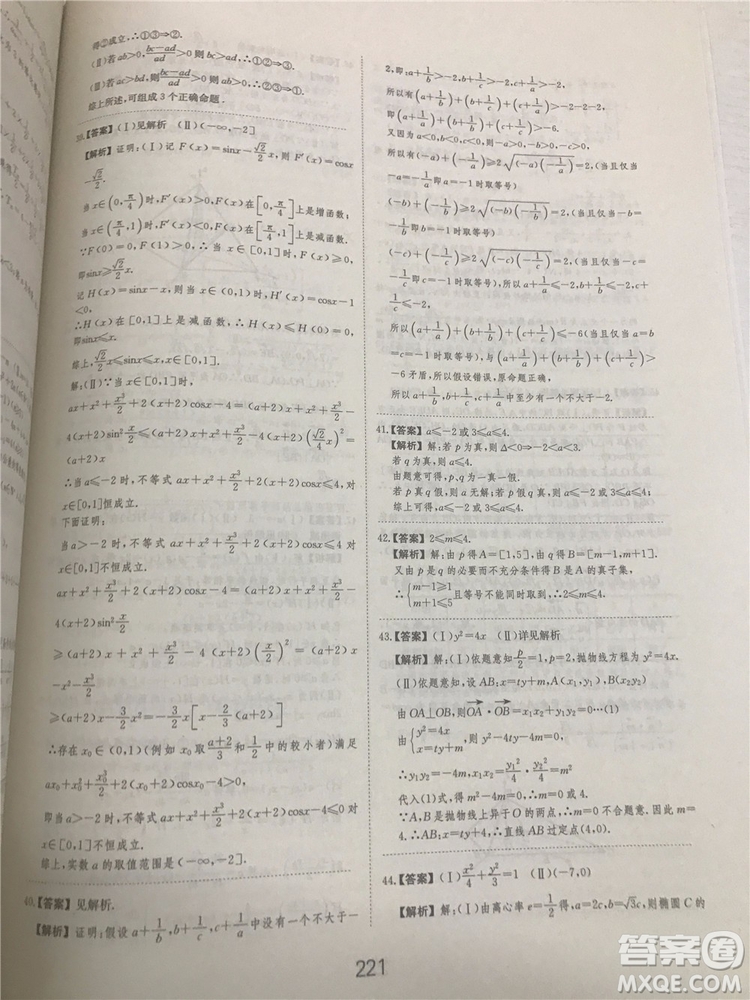 得②成立,∴①③⇒②.
(Ⅱ)若ab>0,(bc-ad)/(ad)>0则bc>ad,∴①②⇒③.
综上所述,可组成3个正确命题.
【答案】(Ⅰ)见解析 (Ⅱ)(-∞,-2]
【解析】证明:(Ⅰ)记F(x)=sinx-(√2/2)x,则F′(x)=cosx
-√2/2.
当x∈(0,π/4)时,F′(x)>0,F(x)在[0,π/4]上是增函数;
当x∈(π/4,1)时,F′(x)<0,F(x)在[π/4,1]上是减函数.
∵F(0)=0,F(1)>0,∴当x∈[0,1]时,F(x)≥0,
即sinx≥(√2/2)x.
记H(x)=sinx-x,则当x∈(0,1)时,H′(x)=cosx-1
<0,
∴H(x)在[0,1]上是减函数,∴H(x)≤H(0)=0,
即sinx≤x.
综上,(√2/2)x≤sinx≤x,x∈[0,1].
解:(Ⅱ)∵当x∈[0,1]时,
ax+x²+x³/2+2(x+2)cosx-4=(a+2)x+x²+x³/2-
4(x+2)sin²(x/2)≤(a+2)x+x²+x³/2-4(x+2)((√2/4)x)²
=(a+2)x
∴当a≤-2时,不等式ax+x²+x³/2+2(x+2)cosx≤4,对
x∈[0,1]恒成立.
下面证明:
当a>-2时,不等式ax+x²+x³/2+2(x+2)cosx≤4对
x∈[0,1]不恒成立.
ax+x²+x³/2+2(x+2)cosx-4=(a+2)x+x²+x³/2-
4(x+2)sin²(x/2)
≥(a+2)x+x²+x³/2-4(x+2)(x/2)²=(a+2)x
-x²-x³/2
≥(a+2)x-(3/2)x²=-(3/2)x[x-(2/3)(a+2)]
∴存在x₀∈(0,1)(例如x₀取(a+2)/3和1/2中的较小者)满足
ax₀+x₀²+x₀³/2+2(x₀+2)cosx₀-4>0,
即当a>-2时,不等式ax+x²+x³/2+2(x+2)cosx-4≤0对
x∈[0,1]不恒成立.
综上,实数a的取值范围是(-∞,-2].
40.【答案】见解析.
【解析】证明:假设a+1/b,b+1/c,c+1/a中没有一个不大于-
2,即:a+1/b>-2,b+1/c>-2,c+1/a>-2,
所以有(a+1/b)+(b+1/c)+(c+1/a)>-2-2-2,
即(a+1/b)+(b+1/c)+(c+1/a)>-6.
又因为a<0,b<0,c<0,
所以有(-a)+(-1/a)≥2√((-a)(-1/a))=2,(当且仅当
a=-1时取等号)
(-b)+(-1/b)≥2√((-b)(-1/b))=2,(当且仅当-b=
-1/b即b=-1时取等号)
(-c)+(-1/c)≥2√((-c)(-1/c))=2,(当且仅当-c=
-1/c即c=-1时取等号),所以a+1/a≤-2,b+1/b≤-2,c
+1/c≤-2,
所以(a+1/b)+(b+1/c)+(c+1/a)≤-6(当且仅当a=b
=c=-1时取等号)与(a+1/b)+(b+1/c)+(c+1/a)>
-6矛盾,所以假设错误,原命题正确,
所以a+1/b,b+1/c,c+1/a中至少有一个不大于-2.
41.【答案】a≤-2或3≤a≤4.
【解析】解:若p为真,则Δ<0⇒-2<a<3.
若q为真,则a≤4.
由题意可得,p与q一真一假.
若p真q假,则a无解;若p假q真,则a≤-2或3≤a≤4;
综上可得,a≤-2或3≤a≤4.
42.【答案】2≤m≤4.
【解析】解:由p得A=[1,5],由q得B=[m-1,m+1].
又由p是q的必要而不充分条件得B是A的真子集,
∴{m-1≥1 m+1≤5且等号不能同时取到,∴2≤m≤4.
43.【答案】(Ⅰ)y²=4x (Ⅱ)详见解析
【解析】解:(Ⅰ)依题意知p/2=1,p=2,抛物线方程为y²=4x.
(Ⅱ)依题意,设AB:x=ty+m,A(x₁,y₁),B(x₂,y₂)
由OA⊥OB,则OA·OB=x₁x₂+y₁y₂=0…(1)
由{y²=4x x=ty+m,则y²-4ty-4m=0,
∴y₁y₂=-4m,x₁x₂=y₁²/4·y₂²/4=m²
代入(1)式,得m²-4m=0,∴m=4或m=0.
∵A、B是抛物线上异于O的两点,∴m=0不合题意.
∴m=4;∴AB:x=ty+4,∴直线AB过定点(4,0).
44.【答案】(Ⅰ)x²/4+y²/3=1 (Ⅱ)(-7,0)
【解析】解:(Ⅰ)由离心率e=1/2,得a=2c,b=√3c,则椭圆C的
221
答案圈
MXQE.COM